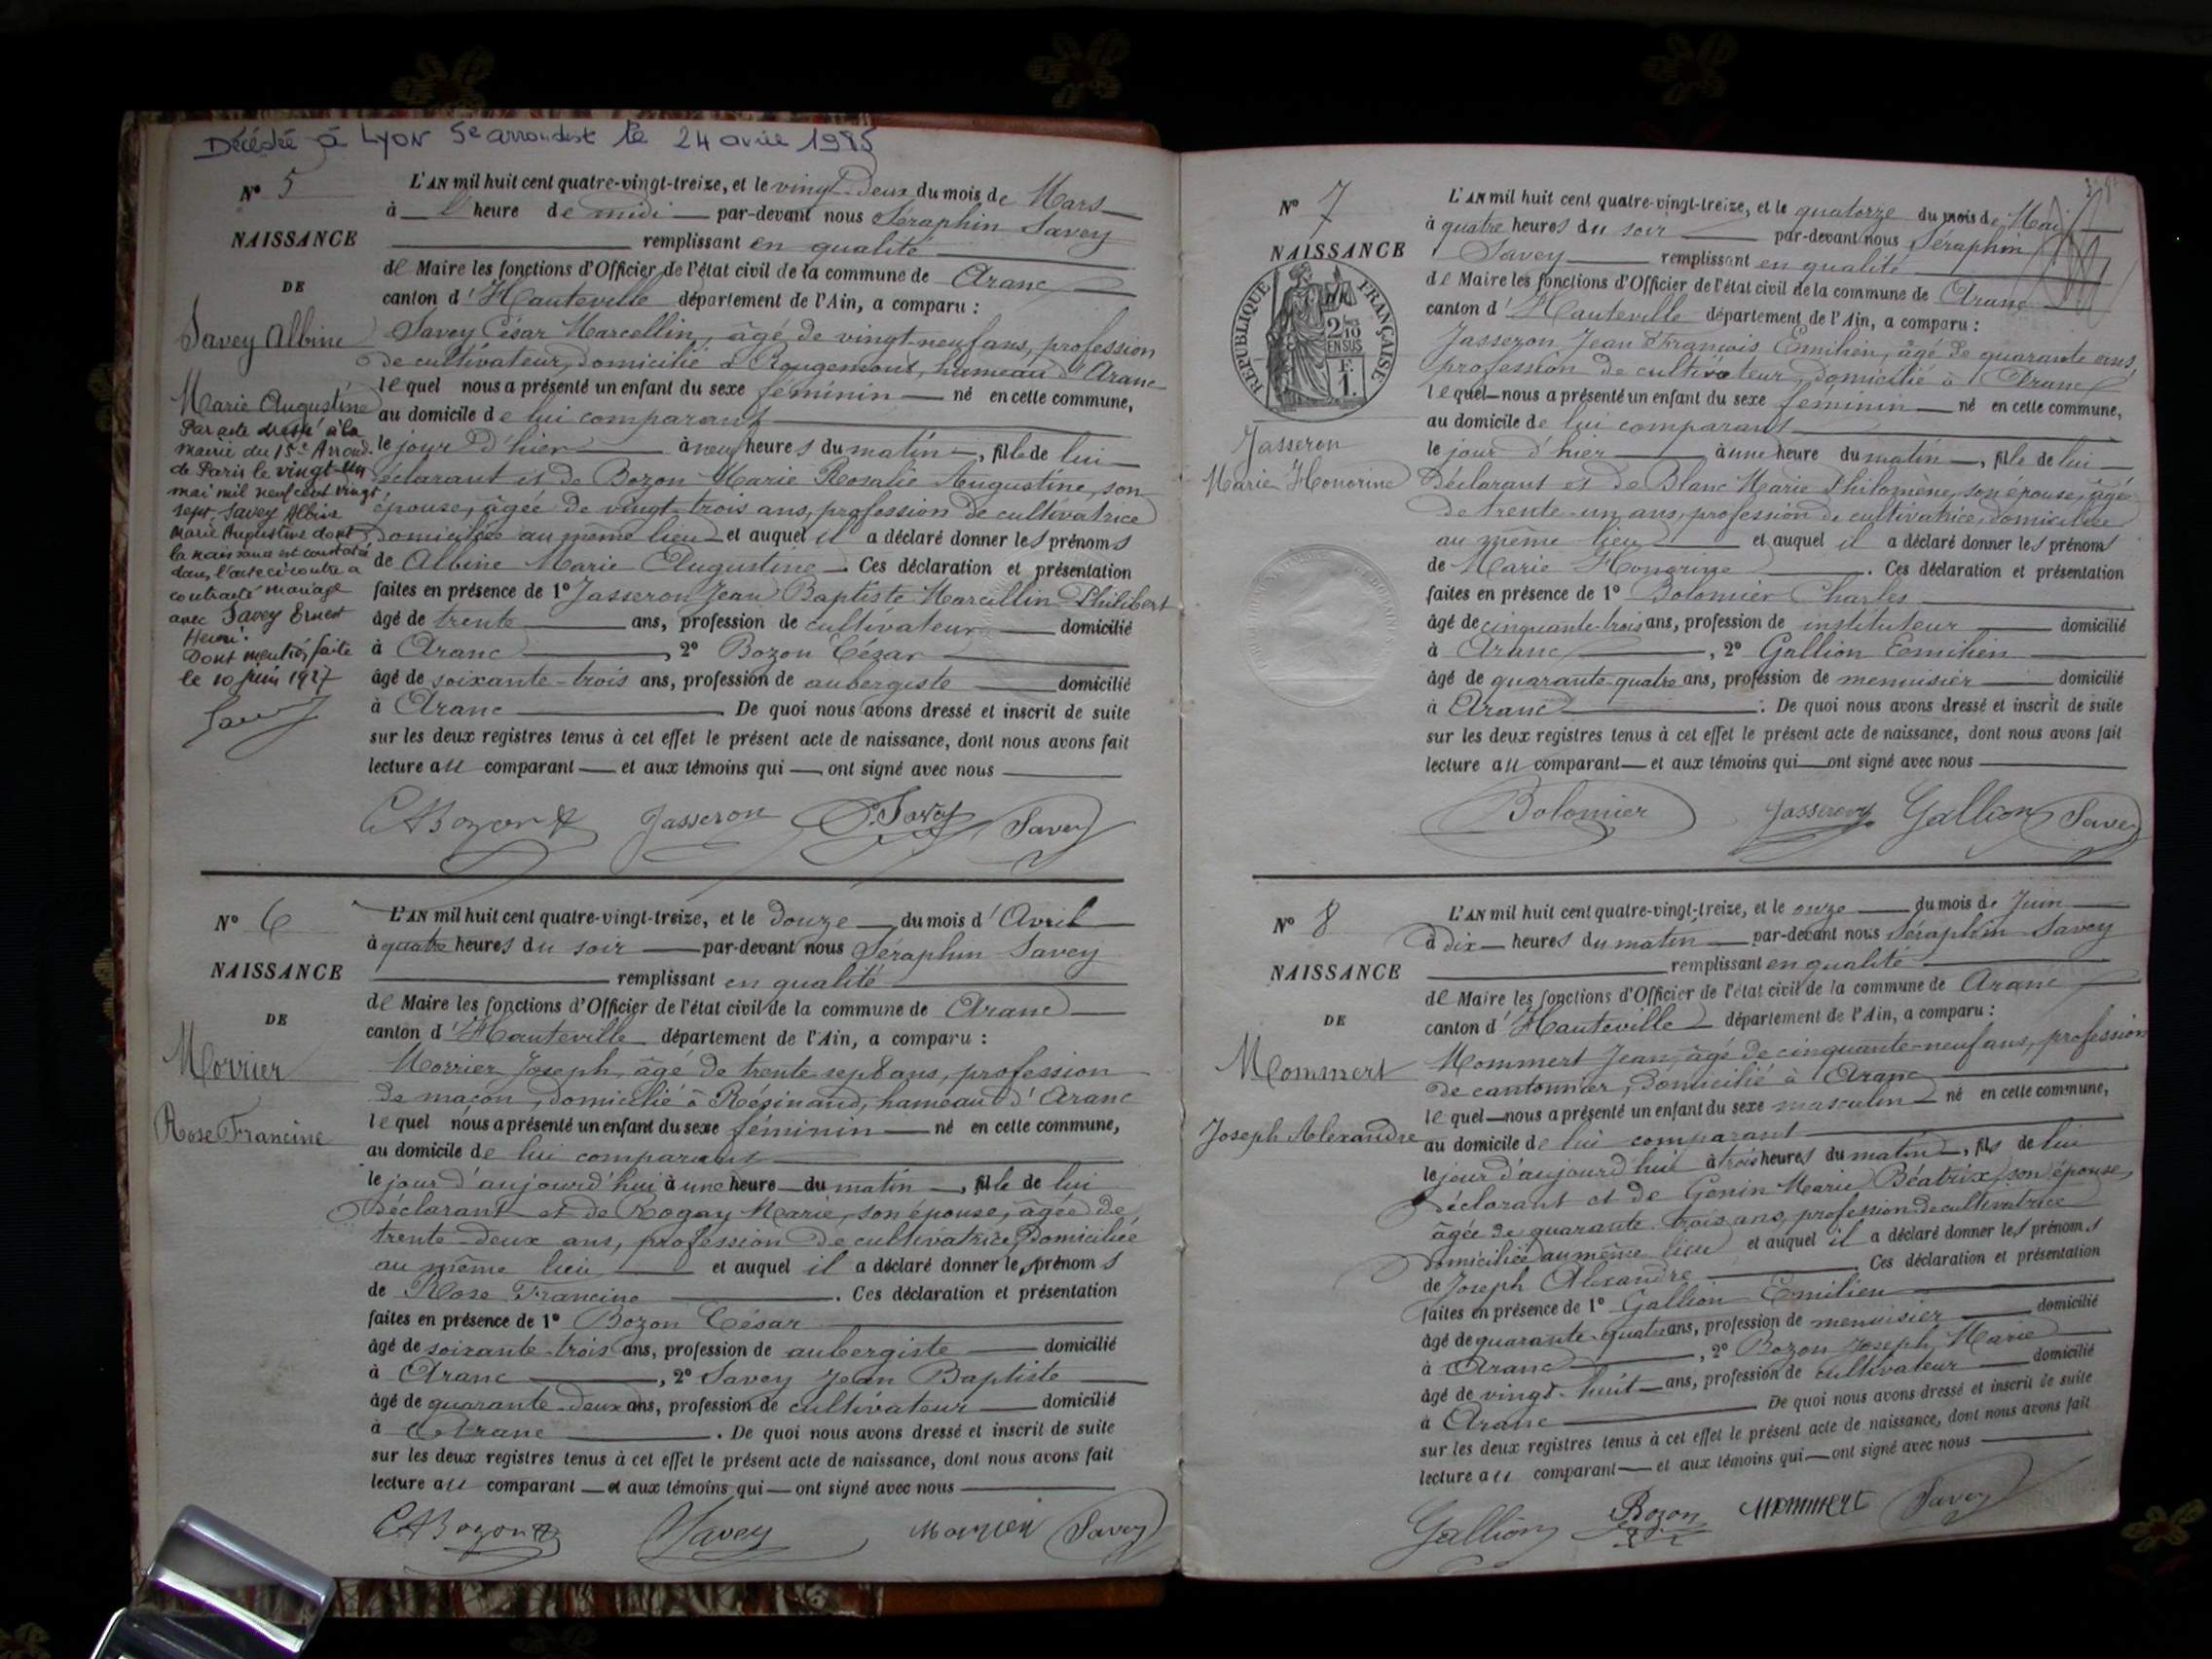 Décédée à Lyon 5e arrondist le 24 avril 1985
N° 5
NAISSANCE
DE
Savey Albine
Marie Augustine
Par acte dressé à la
mairie du 15e Arrond.
de Paris le vingt-un
mai mil neuf cent vingt
sept, Savey Albine
Marie Augustine dont
la naissance est constatée
dans l'acte ci contre a
contracté mariage
avec Savey Ernest
Henri.
Dont mention faite
le 10 juin 1927
Savey
L'AN mil huit cent quatre-vingt-treize, et le vingt-deux du mois de Mars
à l' heure de midi par-devant nous Séraphin Savey
remplissant en qualité
de Maire les fonctions d'Officier de l'état civil de la commune de Aranc
canton d'Hauteville département de l'Ain, a comparu :
Savey César Marcellin, âgé de vingt-neuf ans, profession
de cultivateur, domicilié à Rougemont, hameau d'Aranc
lequel nous a présenté un enfant du sexe féminin né en cette commune,
au domicile de lui comparant
le jour d'hier à neuf heures du matin, fille de lui
déclarant et de Bozon Marie Rosalie Augustine, son
épouse, âgée de vingt-trois ans, profession de cultivatrice
domiciliée au même lieu et auquel il a déclaré donner les prénoms
de Albine Marie Augustine. Ces déclaration et présentation
faites en présence de 1° Jasseron Jean Baptiste Marcellin Philibert
âgé de trente ans, profession de cultivateur domicilié
à Aranc, 2° Bozon César
âgé de soixante-trois ans, profession de aubergiste domicilié
à Aranc. De quoi nous avons dressé et inscrit de suite
sur les deux registres tenus à cet effet le présent acte de naissance, dont nous avons fait
lecture au comparant et aux témoins qui ont signé avec nous
Bozon Jasseron Savey Savey
N° 6
NAISSANCE
DE
Morrier
Rose Francine
L'AN mil huit cent quatre-vingt-treize, et le douze du mois d'Avril
à quatre heures du soir par-devant nous Séraphin Savey
remplissant en qualité
de Maire les fonctions d'Officier de l'état civil de la commune de Aranc
canton d'Hauteville département de l'Ain, a comparu :
Morrier Joseph, âgé de trente-sept ans, profession
de maçon, domicilié à Résinand, hameau d'Aranc
lequel nous a présenté un enfant du sexe féminin né en cette commune,
au domicile de lui comparant
le jour d'aujourd'hui à une heure du matin, fille de lui
Déclarant et de Rogay Marie, son épouse, âgée de
trente-deux ans, profession de cultivatrice, domiciliée
au même lieu et auquel il a déclaré donner les prénoms
de Rose Francine. Ces déclaration et présentation
faites en présence de 1° Bozon César
âgé de soixante-trois ans, profession de aubergiste domicilié
à Aranc, 2° Savey Jean Baptiste
âgé de quarante-deux ans, profession de cultivateur domicilié
à Aranc. De quoi nous avons dressé et inscrit de suite
sur les deux registres tenus à cet effet le présent acte de naissance, dont nous avons fait
lecture au comparant et aux témoins qui ont signé avec nous
Bozon Savey Morrier Savey
N° 7
NAISSANCE
RÉPUBLIQUE FRANÇAISE
2/10 EN SUS
F. 1.
Jasseron
Marie Honorine
L'AN mil huit cent quatre-vingt-treize, et le quatorze du mois de Mai
à quatre heures du soir par-devant nous Séraphin
Savey remplissant en qualité
de Maire les fonctions d'Officier de l'état civil de la commune de Aranc
canton d'Hauteville département de l'Ain, a comparu :
Jasseron Jean François Emilien, âgé de quarante ans,
profession de cultivateur, domicilié à Aranc
lequel nous a présenté un enfant du sexe féminin né en cette commune,
au domicile de lui comparant
le jour d'hier à une heure du matin, fille de lui
Déclarant et de Blanc Marie Philomène, son épouse, âgée
de trente-un ans, profession de cultivatrice, domiciliée
au même lieu et auquel il a déclaré donner les prénoms
de Marie Honorine. Ces déclaration et présentation
faites en présence de 1° Bolomier Charles
âgé de cinquante-trois ans, profession de instituteur domicilié
à Aranc, 2° Gallion Emilien
âgé de quarante-quatre ans, profession de menuisier domicilié
à Aranc. De quoi nous avons dressé et inscrit de suite
sur les deux registres tenus à cet effet le présent acte de naissance, dont nous avons fait
lecture au comparant et aux témoins qui ont signé avec nous
Bolomier Jasseron Gallion Savey
N° 8
NAISSANCE
DE
Mommert
Joseph Alexandre
L'AN mil huit cent quatre-vingt-treize, et le onze du mois de Juin
à dix heures du matin par-devant nous Séraphin Savey
remplissant en qualité
de Maire les fonctions d'Officier de l'état civil de la commune de Aranc
canton d'Hauteville département de l'Ain, a comparu :
Mommert Jean, âgé de cinquante-neuf ans, profession
de cantonnier, domicilié à Aranc
lequel nous a présenté un enfant du sexe masculin né en cette commune,
au domicile de lui comparant
le jour d'aujourd'hui à trois heures du matin, fils de lui
Déclarant et de Genin Marie Béatrix, son épouse,
âgée de quarante-trois ans, profession de cultivatrice
domiciliée au même lieu et auquel il a déclaré donner les prénoms
de Joseph Alexandre. Ces déclaration et présentation
faites en présence de 1° Gallion Emilien
âgé de quarante-quatre ans, profession de menuisier domicilié
à Aranc, 2° Bozon Joseph Marie
âgé de vingt-huit ans, profession de cultivateur domicilié
à Aranc. De quoi nous avons dressé et inscrit de suite
sur les deux registres tenus à cet effet le présent acte de naissance, dont nous avons fait
lecture au comparant et aux témoins qui ont signé avec nous
Gallion Bozon Mommert Savey